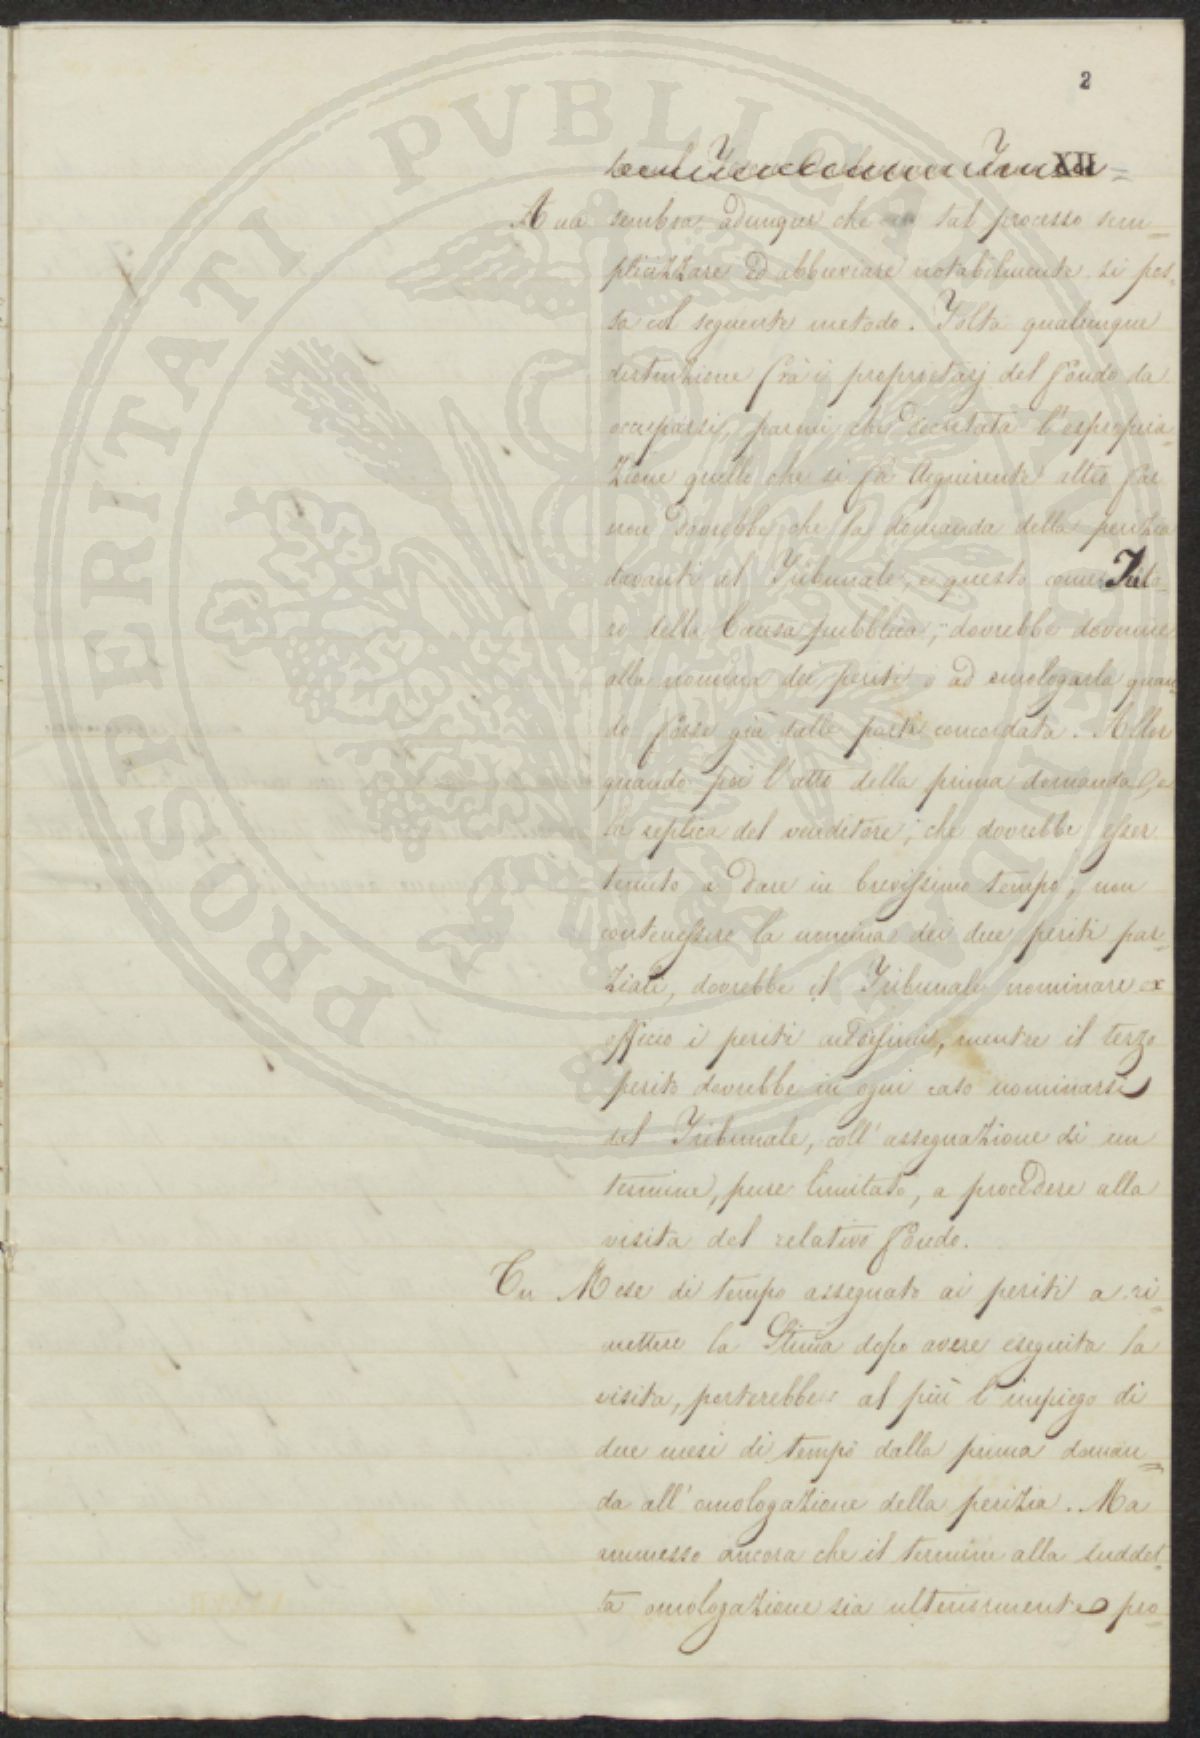 2
XII
A me sembra adunque che un tal processo sem=
plicizzare ed abbreviare notabilmente si pos-
sa col seguente metodo. Tolta qualunque
distinzione frà i proprietarj del fondo da
occuparsi, parmi che decretata l'espropria-
zione quello che si fa Acquirente altro far
non dovrebbe che la domanda della perizia
davanti al Tribunale, e questo come Tuto-
re della Causa pubblica, dovrebbe devenire
alla nomina dei periti o ad omologarla quan-
do fosse già dalle parti concordata. Allor
quando poi l'atto della prima domanda, e
la replica del venditore, che dovrebbe esser
tenuto a dare in brevissimo tempo, non
contenessere la nomina dei due periti par-
ziali, dovrebbe il Tribunale nominare ex
officio i periti medesimi, mentre il terzo
perito dovrebbe in ogni caso nominarsi
dal Tribunale, coll'assegnazione di un
termine, pure limitato, a procedere alla
visita del relativo fondo.
Un Mese di tempo assegnato ai periti a ri-
mettere la Stima dopo avere eseguita la
visita, porterebbe al più l'impiego di
due mesi di tempo dalla prima doman=
da all'omologazione della perizia. Ma
ammesso ancora che il termine alla suddet-
ta omologazione sia ulteriormente pro-
PROSPERITATI PVBLICAE